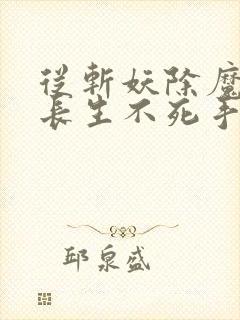 從斬妖除魔
長生不死手
邱泉盛